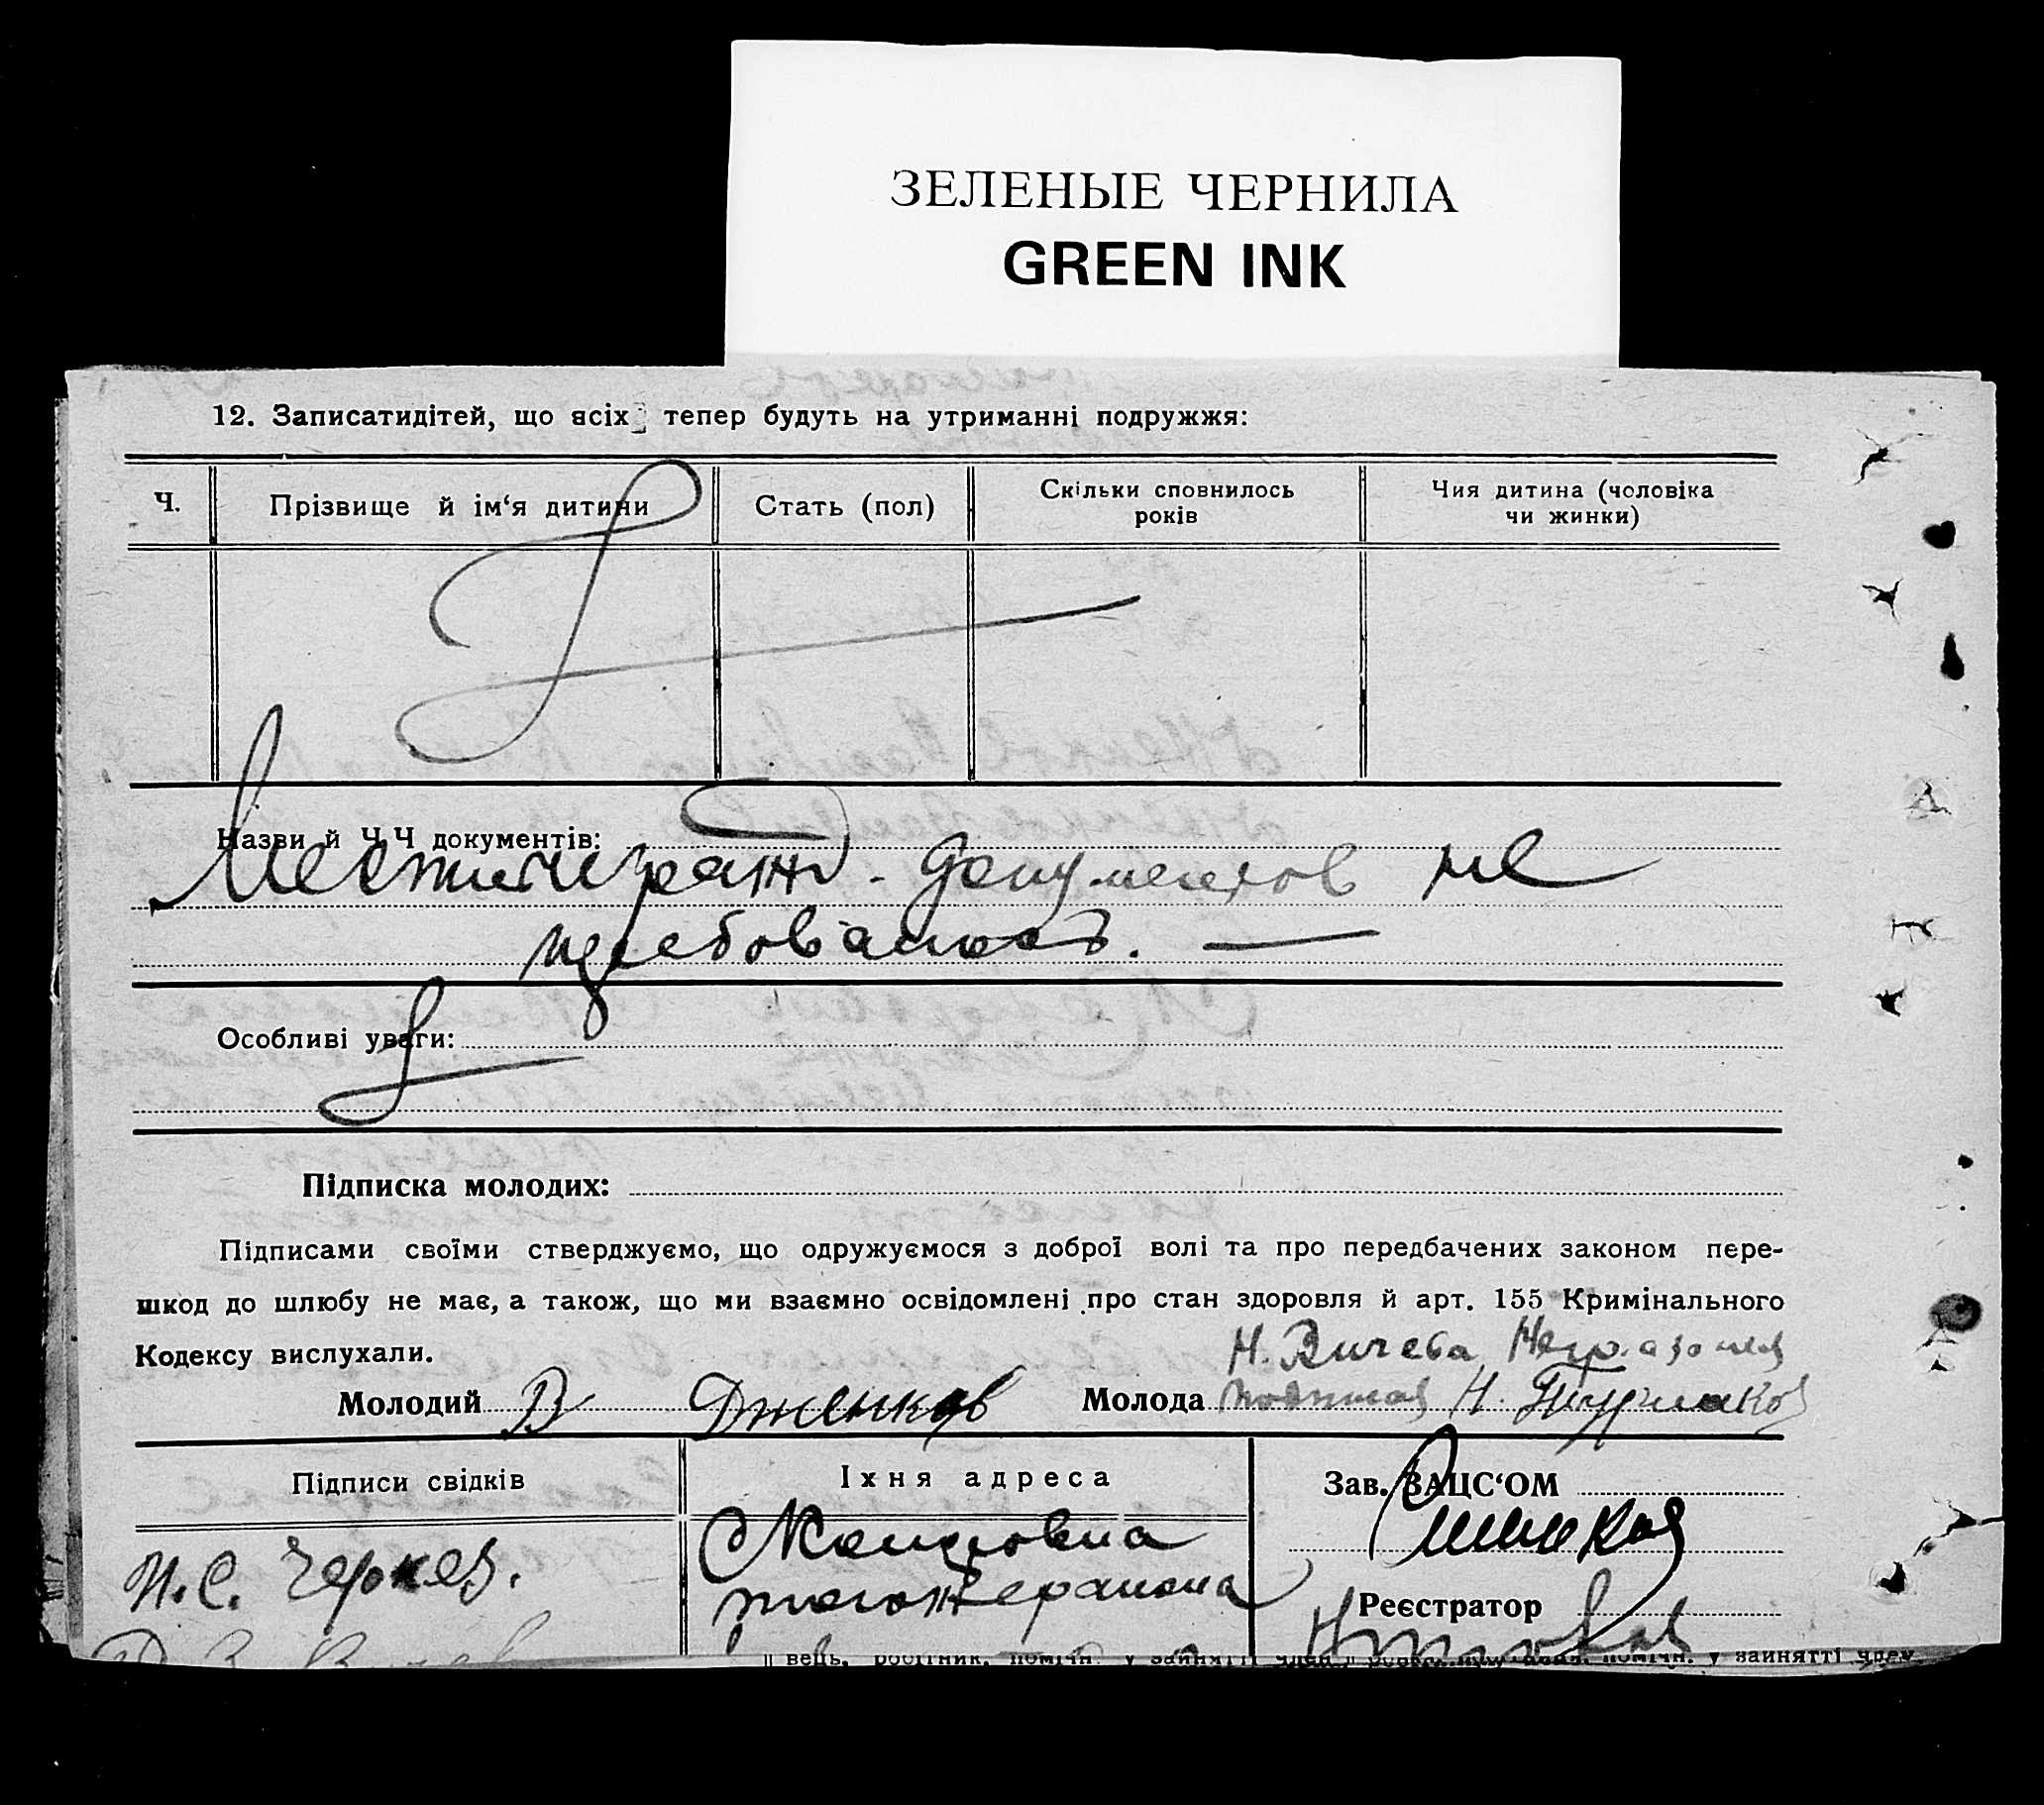 ЗЕЛЕНЫЕ ЧЕРНИЛА
GREEN INK
12. Записатидітей, що всіх тепер будуть на утриманні подружжя:
Ч. Прізвище й ім‘я дитини Стать (пол) Скільки сповнилось років Чия дитина (чоловіка чи жинки)
Назви й Ч.Ч документів:
документов не
требовалось.
Особливі уваги:
Підписка молодих:
Підписами своїми стверджуємо, що одружуємося з доброї волі та про передбачених законом пере-
шкод до шлюбу не має, а також, що ми взаємно освідомлені про стан здоровля й арт. 155 Кримінального
Кодексу вислухали.
Н. Вичева
Молодий В Дженков Молода Н.
Підписи свідків Їхня адреса Зав. ЗАЦС‘ОМ
Н. С. Черкез.
тогожерайона
Реєстратор
у заинятті